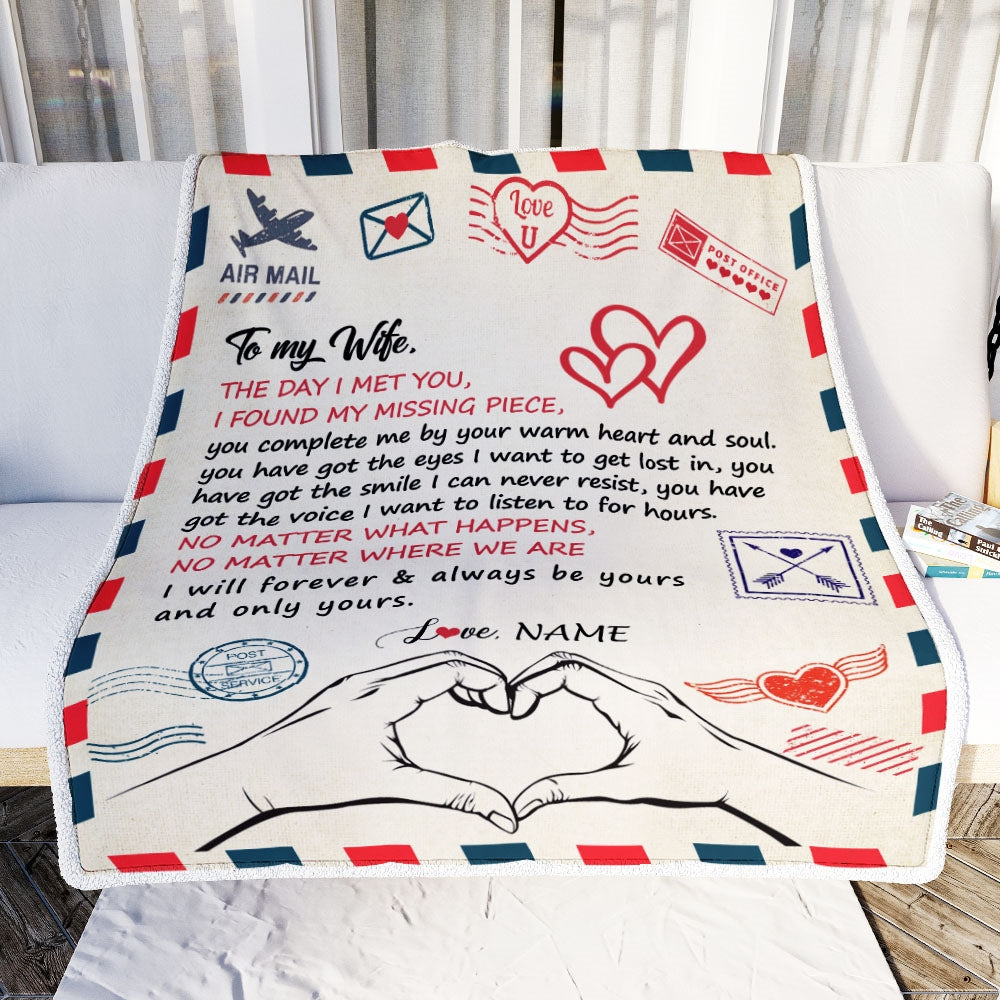 Love
U
AIR MAIL
POST OFFICE
To my Wife,
THE DAY I MET YOU,
I FOUND MY MISSING PIECE,
you complete me by your warm heart and soul.
you have got the eyes I want to get lost in, you
have got the smile I can never resist, you have
got the voice I want to listen to for hours.
NO MATTER WHAT HAPPENS,
NO MATTER WHERE WE ARE
I will forever & always be yours
and only yours.
Love, NAME
POST
SERVICE
The
Calling
Paul